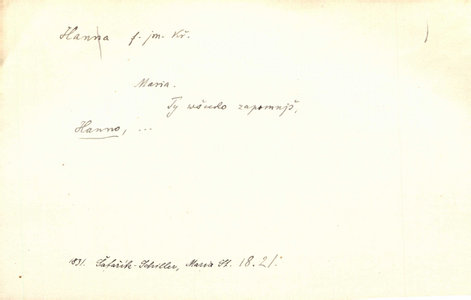 Hanna f. jm. Kř.
Maria.
Ty wšecko zapomnjš,
Hanno, ...
831. Šafařík-Schiller, Maria St. 18.21.